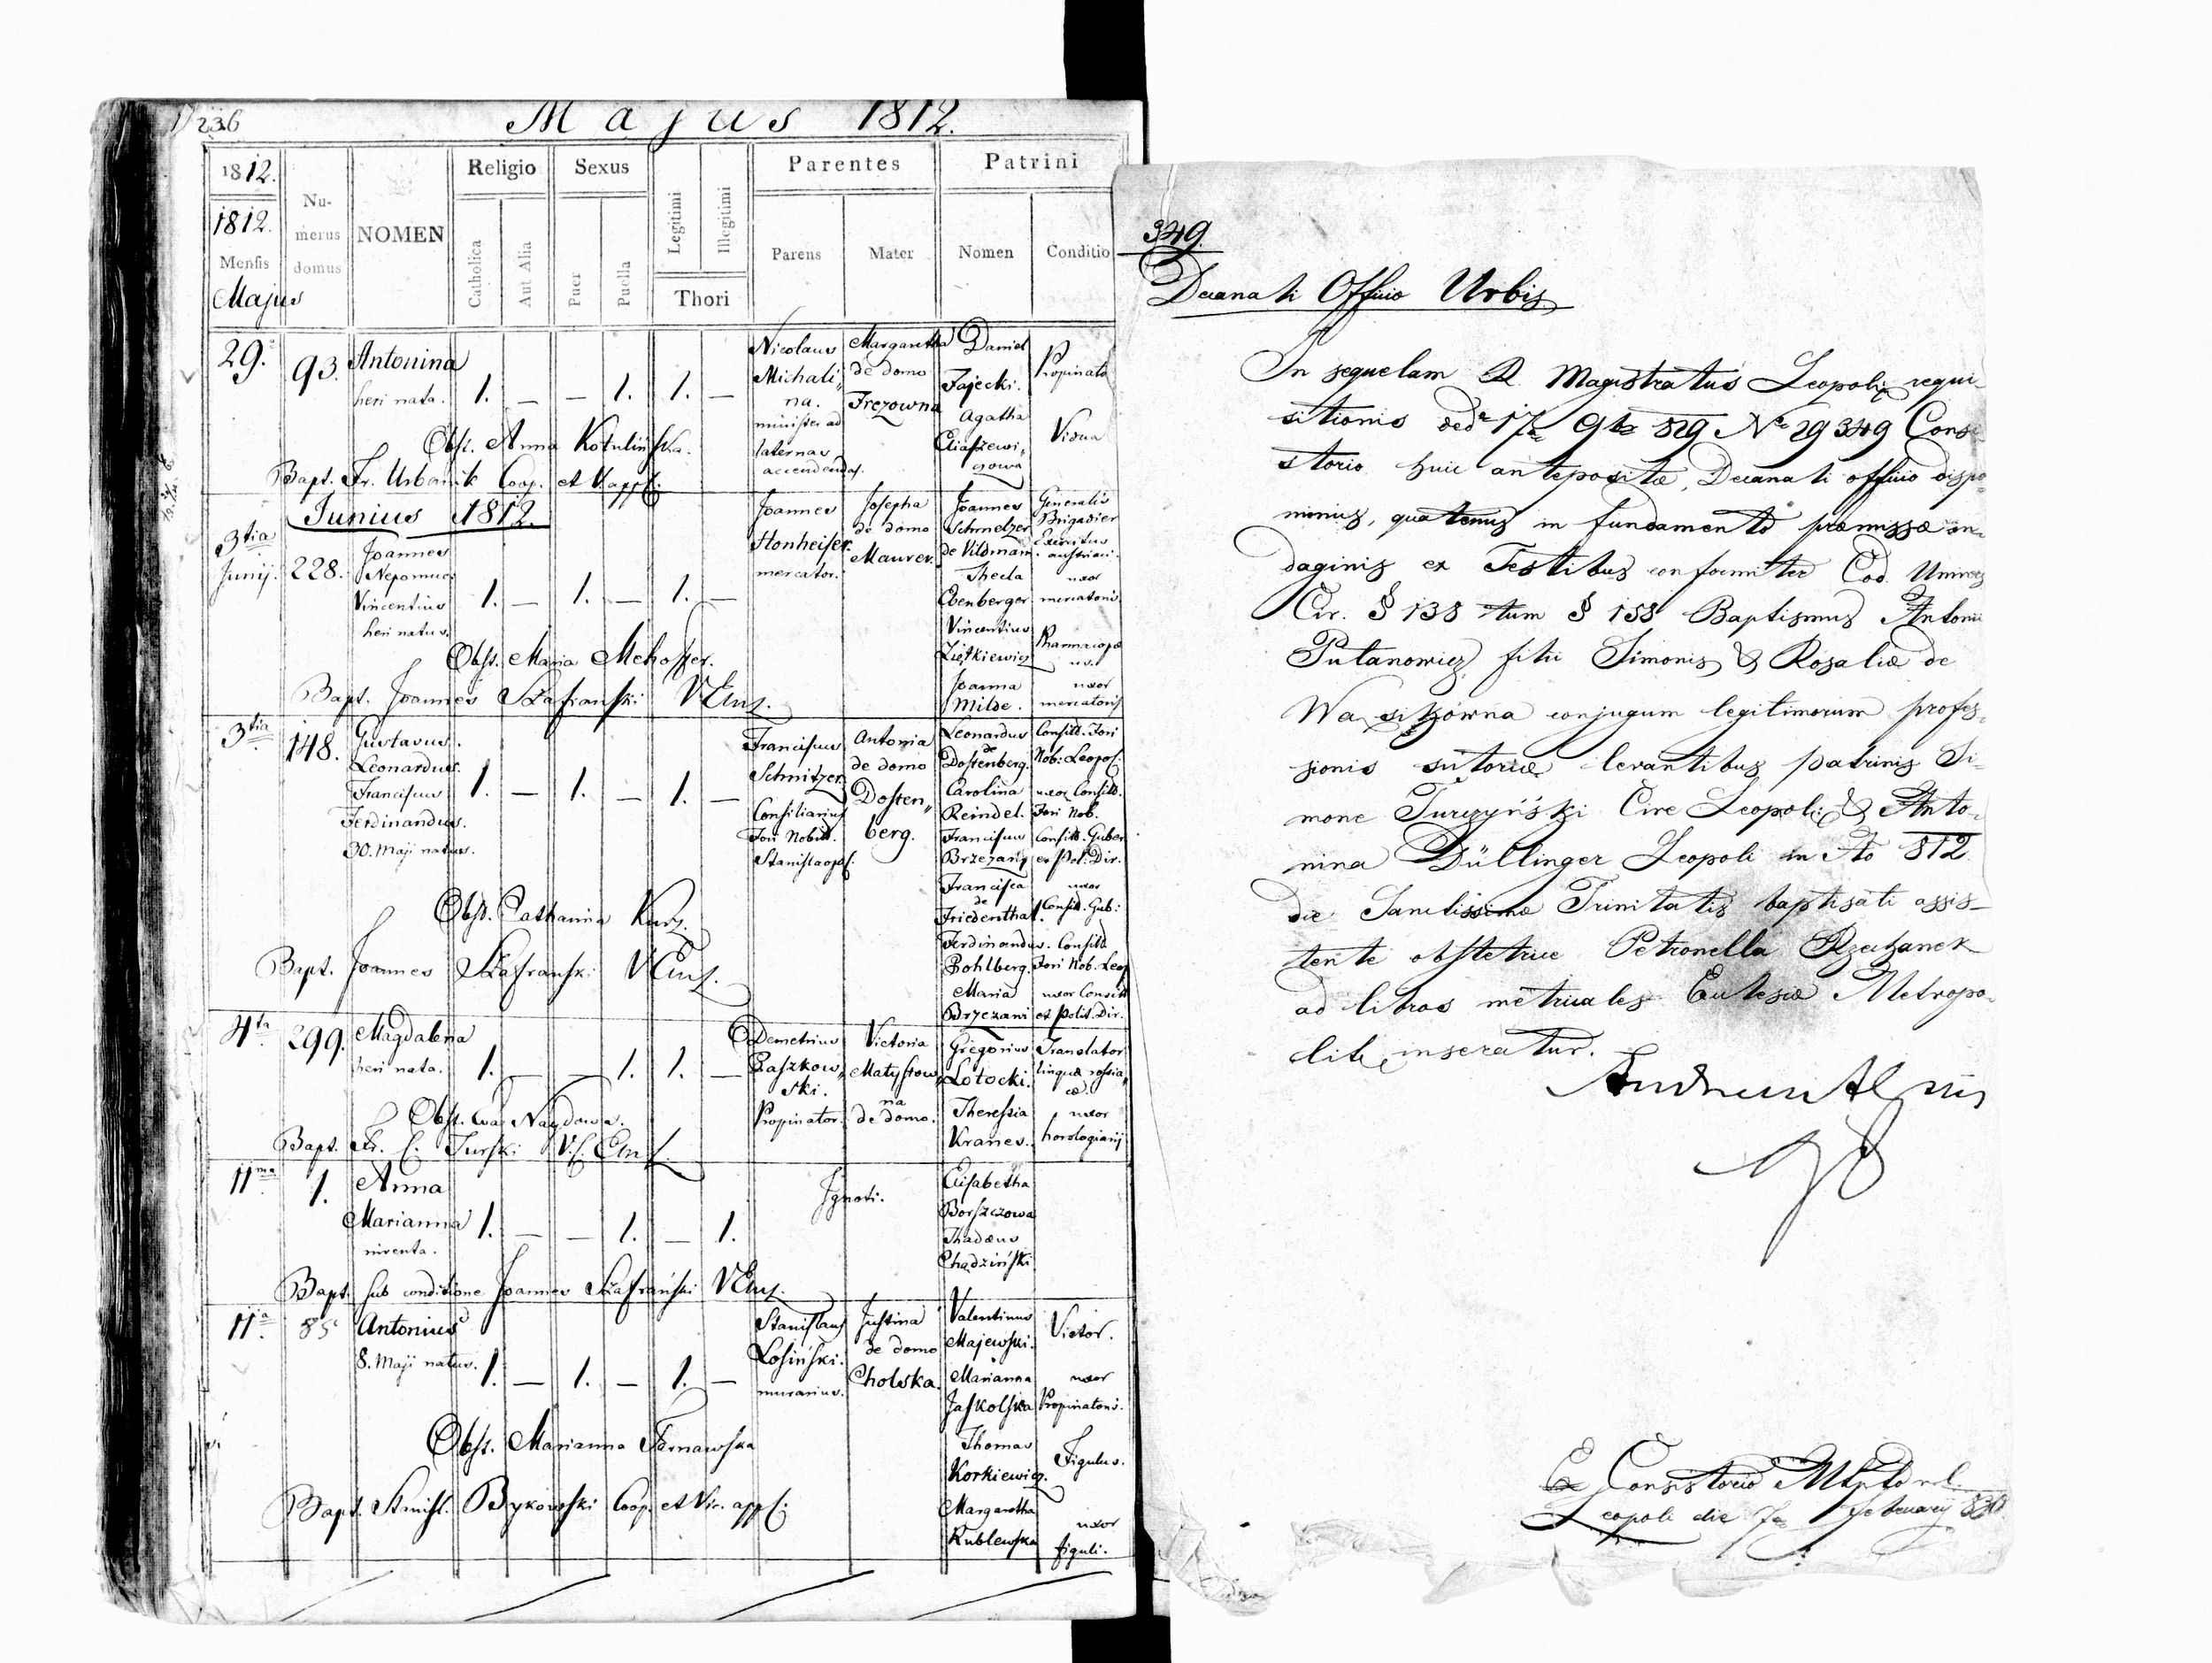 236
Majus 1812.
1812.
1812.
Mensis
Majus
Numerus domus
NOMEN
Religio
Catholica
Aut Alia
Sexus
Puer
Puella
Legitimi
Illegitimi
Thori
Parentes
Parens
Mater
Patrini
Nomen
Conditio
29.
93.
Antonina
heri nata.
1. — — 1. 1. —
Nicolaus
Michali-
na.
minister ad
laternas
accendendas.
Margaretha
de domo
Frezowna
Daniel
Zajecki.
Agatha
Eliaszewi-
czowa
Propinato
Vidua
Obst. Anna Kotulińska.
Bapt. Fr. Urbanik Coop. et V. appl.
Junius 1812.
3tia
Junij.
228.
Joannes
Nepomuc.
Vincentius
heri natus.
1. — 1. — 1. —
Joannes
Stonheiser.
mercator.
Josepha
de domo
Maurer.
Joannes
Schmelzer
de Vildmann.
Thecla
Ebenberger
Vincentius
Ziętkiewicz
Joanna
Milde.
Generalis
Brigadier
Exercitus
austriaci.
uxor
mercatoris
Pharmacopæ
us.
uxor
mercatoris
Obst. Maria Mehoffer.
Bapt. Joannes Szafrański V Cus.
3tia
148.
Gustavus.
Leonardus.
Franciscus
Ferdinandus.
30. Maji natus.
1. — 1. — 1. —
Franciscus
Schnitzer
Consiliarius
Fori Nobil.
Stanislaopol.
Antonia
de domo
Dosten-
berg.
Leonardus
de
Dostenberg.
Carolina
Reindel.
Franciscus
Brzezany
Francisca
de
Friedenthal.
Ferdinandus.
Bohlberg.
Maria
Brzezani
Consil. Fori
Nob: Leopol.
uxor Consil.
Fori Nob.
Consil. Guber
et Pol. Dir.
uxor
Consil. Gub:
Consil.
Fori Nob. Leop
uxor Consil
et Polit. Dir.
Obst. Catharina Kurz.
Bapt. Joannes Szafranski V Cus.
4ta
299.
Magdalena
heri nata.
1. — — 1. 1. —
Demetrius
Paszkow-
ski.
Propinator.
Victoria
Matysow-
na
de domo.
Gregorius
Łotocki.
Theressia
Kranes.
Translator
linguæ rossia-
cæ.
uxor
horologiarij
Obst. Eva Naydowa.
Bapt. Fr. C. Turski V. C. Cus.
11ma
1.
Anna
Marianna
inventa.
1. — — 1. — 1.
Ignoti.
Elisabetha
Borszczowa
Thadæus
Chądziński
Bapt. sub conditione Joannes Szafrański V Cus.
11a
85
Antonius
8. Maji natus.
1. — 1. — 1. —
Stanislaus
Losiński.
murarius.
Justina
de domo
Cholska.
Valentinus
Majewski.
Marianna
Jaskolska
Thomas
Korkiewicz.
Margaretha
Kublewska
Victor.
uxor
Propinatoris.
Figulus.
uxor
figuli.
Obst. Marianna Tarnawska
Bapt. Stanisl. Bykowski Coop. et Vic. appl:
349.
Decanali Officio Urbis
In sequelam R. Magistratus Leopolis requi-
sitionis dedo 17a 9bris 829 No 29349 Consi-
storio huic antepositæ, Decanali officio dispo-
nimus, quatenus in fundamento præmissæ in-
daginis ex Testibus conformiter Cod. Univers
Civ. § 138 tum § 158 Baptismus Antonii
Putanowicz, filii Simonis & Rosaliæ de
Wasitzówna conjugum legitimorum profes-
sionis sutoriæ levantibus patrinis Si-
mone Turczyński Cive Leopoli: & Anto-
nina Düllinger Leopoli in Ao 812
die Sanctissimæ Trinitatis baptisati assis-
tente obstetrice Petronella Rzeczanek
ad libros metricales Ecclesiæ Metropo-
litæ inseratur.
Ex Consistorio Mtptno r. l.
Leopoli die 7a February 830.